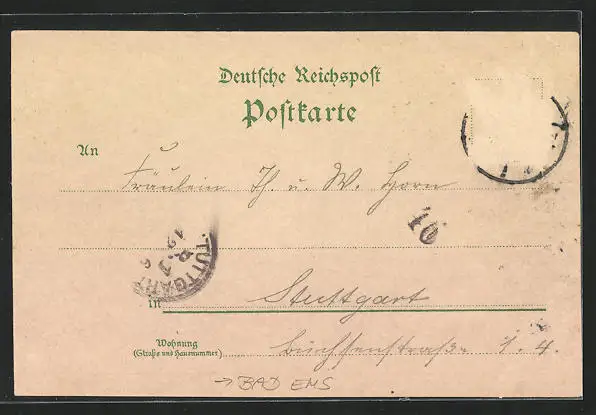 Deutsche Reichspost
Postkarte
An
Fräulein Th. u. W. Horn
10
STUTTGART
in Stuttgart
Wohnung
(Straße und Hausnummer)
Büchsenstraße 1.4.
→ BAD EMS